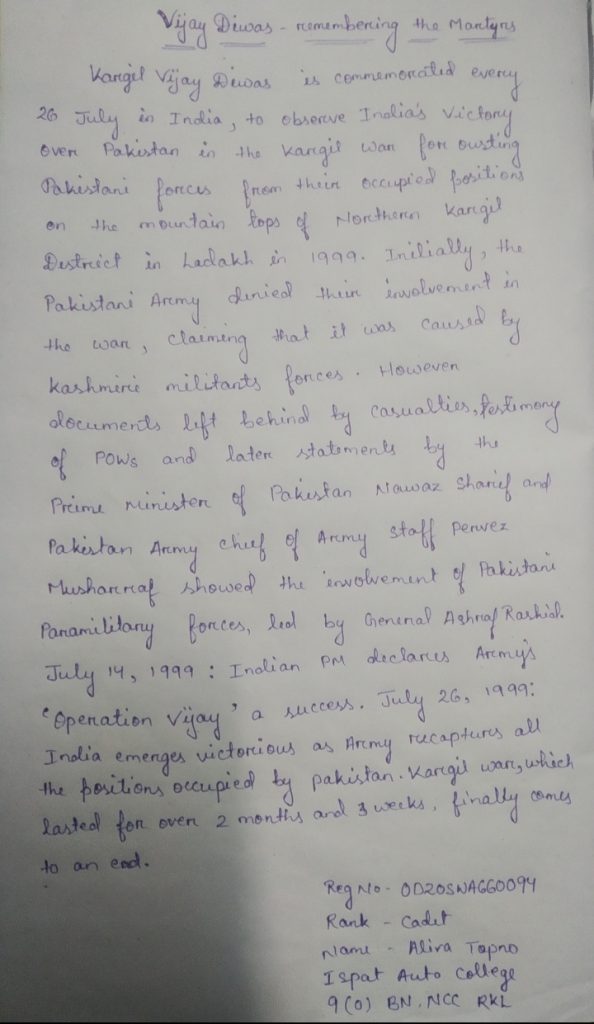 Vijay Diwas - remembering the Martyrs
Kargil Vijay Diwas is commemorated every
26 July in India, to observe India's Victory
over Pakistan in the Kargil war for ousting
Pakistani forces from their occupied positions
on the mountain tops of Northern Kargil
District in Ladakh in 1999. Initially, the
Pakistani Army denied their involvement in
the war, claiming that it was caused by
Kashmiri militants forces. However
documents left behind by casualties, testimony
of POWs and later statements by the
Prime minister of Pakistan Nawaz Sharif and
Pakistan Army chief of Army Staff Pervez
Musharraf showed the involvement of Pakistani
Paramilitary forces, led by General Ashraf Rashid.
July 14, 1999 : Indian PM declares Army's
'Operation Vijay' a success. July 26, 1999:
India emerges victorious as Army recaptures all
the positions occupied by pakistan. Kargil war, which
lasted for over 2 months and 3 weeks, finally comes
to an end.
Reg No - OD20SWA660094
Rank - Cadet
Name - Alira Topno
Ispat Auto College
9(O) BN. NCC RKL